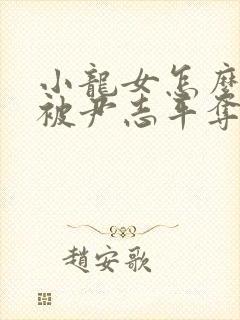 小龍女怎麼
被尹志平奪
趙安歌